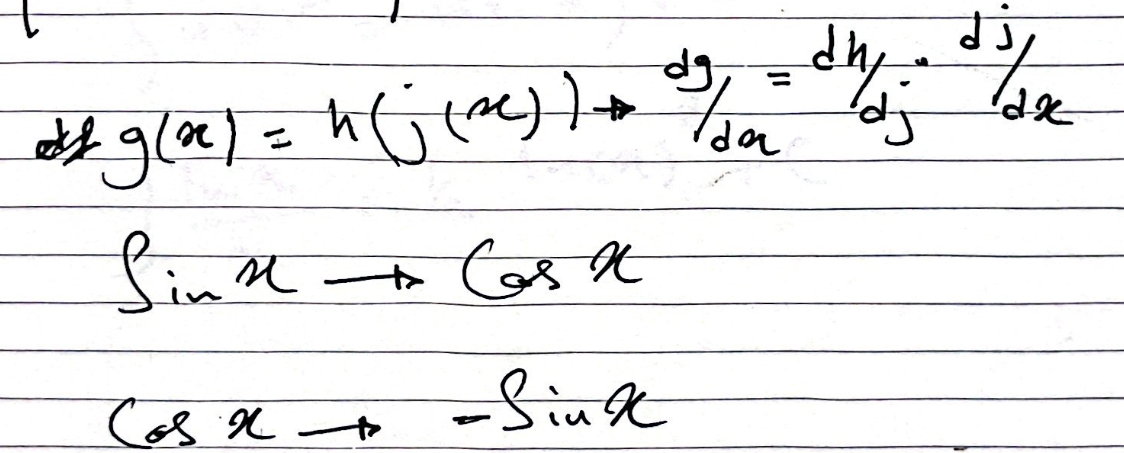 g(x) = h(j(x)) → dg/dx = dh/dj · dj/dx
Sin x → Cos x
Cos x → -Sin x